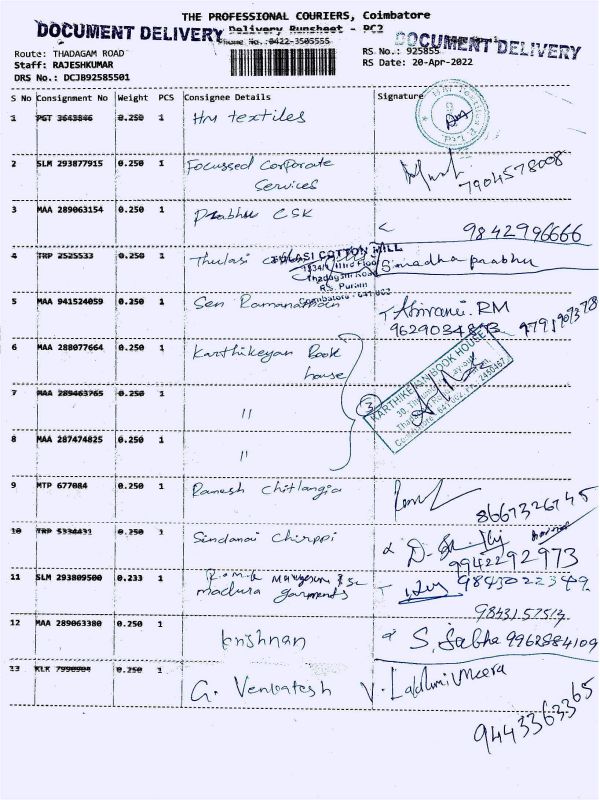 THE PROFESSIONAL COURIERS, Coimbatore
Delivery Runsheet - PC2
DOCUMENT DELIVERY
DOCUMENT DELIVERY
Phone No.:0422-3505555
Route: THADAGAM ROAD
RS No.: 925855
Staff: RAJESHKUMAR
RS Date: 20-Apr-2022
DRS No.: DCJB92585501
S No Consignment No Weight PCS Consignee Details Signature
1 PGT 3643846 0.250 1 HM textiles
2 SLM 293877915 0.250 1 Focussed Corporate
Services
7904578008
3 MAA 289063154 0.250 1 Prabhu CSK
9842996666
4 TRP 2525533 0.250 1 Thulasi
TULASI COTTON MILL
Thadagam Road
R.S. Puram
Coimbatore - 641 002
Simadha prabhu
5 MAA 941524059 0.250 1 Sen Ramanathan
Abirami. RM
6 MAA 288077664 0.250 1 Karthikeyan Book
house
KARTHIKEYAN BOOK HOUSE
3
7 MAA 289463765 0.250 1 "
8 MAA 287474825 0.250 1 "
9 MTP 677084 0.250 1 Ramesh Chitlangia
8667326745
10 TRP 5334431 0.250 1 Sindanai Chirppi
9942292973
11 SLM 293809500 0.233 1
madura garments
9843022349
9843157513
12 MAA 289063380 0.250 1 krishnan
S. Sabha 9962884109
13 KLK 7990984 0.250 1 G. Venkatesh V. Lakshmi Meera
9443363365